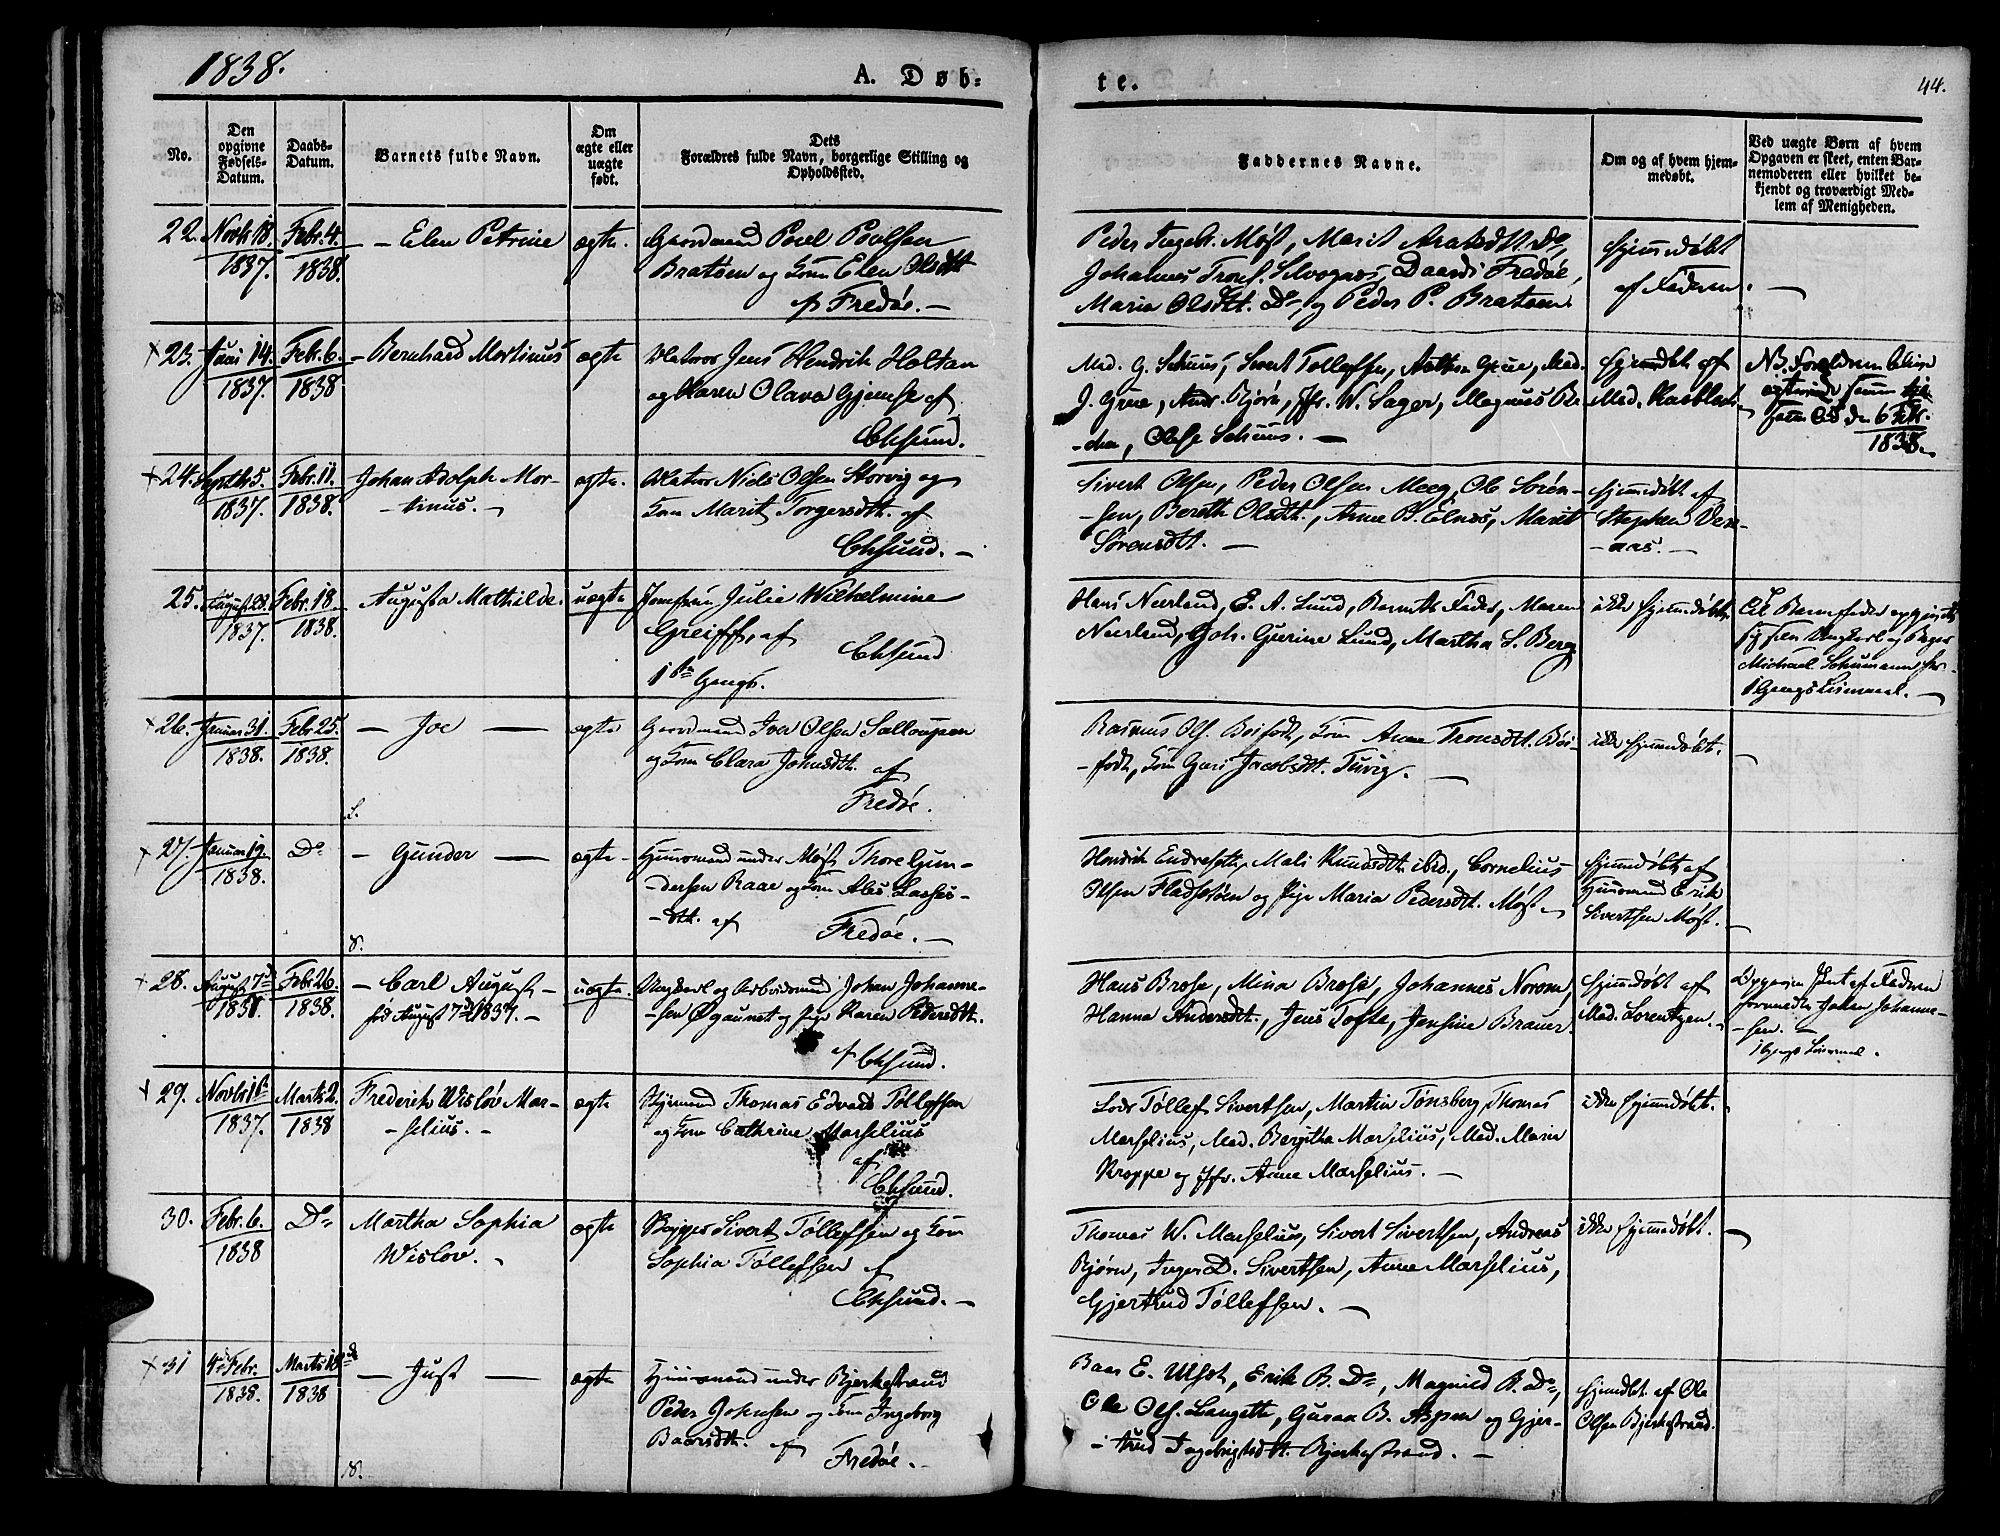 1838.
A. Døb-
te.
44.
No.
Den
opgivne
Fødsels-
Datum.
Daabs-
Datum.
Barnets fulde Navn.
Om
ægte eller
uægte
født.
Dets
Forældres fulde Navn, borgerlige Stilling og
Opholdssted.
Faddernes Navne.
Om og af hvem hjem-
medøbt.
Ved uægte Børn af hvem
Opgaven er skeet, enten Bar-
nemoderen eller hvilket be-
kjendt og troværdigt Med-
lem af Menigheden.
22. Novbr 18.
1837.
Febr. 4.
1838.
Elen Petrine
ægte.
Gaardmand Poul Poulsen
Bratøen og Kone Elen Olsdtt
af Fredøe.
Marit
Johannes Daardi Fredøe,
Maria Olsdtt. Do, og Peder P. Bratøen.
Hjemmedøbt
af Faderen.
23. 14.
1837.
Febr. 6.
1838
Bernhard Martinus
ægte
Jens Hendrik Holtan
og Karen Olava Gjemse af
Chsund.
Mad. G. Schuus, Sivert Tølleffen, Grue, Mad.
J. Grue, Andr. Bjørn, Jfr. W. Sager, Magnus
Schuus.
af
Mad.
NB.
den 6 Febr.
1838.
24. Septbr 5.
1837.
Febr. 11.
1838.
Johan Adolph Mar-
tinus.
ægte.
Niels Olsen Storvig og
Kone Marit Torgersdtt. af
Chsund.
Sivert Olsen, Peder Olsen Meeg, Ole Søren-
sen, Bereth Olsdtt., Anne B. Elnes, Marit
Sørensdtt.
Hjemmedøbt af
Stephen Ven-
aas.
25. August 28.
1837.
Febr. 18
1838.
Augusta Mathilde.
uægte
Jomfrue Julie Wilhelmine
Greiff, af
Chsund
1ste Gang.
Hans Neerland, E. A. Lund, Feder, Maren
Neerland, Joh. Gurine Lund, Martha S. Berg
ikke hjemmedøbt.
Til Barnefader opgivet
Ungkarl og
Michael Schumann, for
1 Gangs Leiermaal.
26. Januar 31.
1838.
Febr. 25.
1838.
Joe
ægte
Gaardmand Iver Olsen
og Kone Clara Johnsdtt. af
Fredøe.
Rasmus Ols. Boifodt, Kone Anne Tronsdtt. Boi-
fodt, Kone Guri Jacobsdtt. Tuvig.
ikke hjemmedøbt.
27. Januar 19.
1838.
Do
Gunder
ægte
Huusmand under Møst Thore Gun-
dersen Raae og Kone Ales Lasses-
dtt. af
Fredøe.
Hendrik Mali Knudsdtt. ibid, Cornelius
Olsen og Pige Maria Pedersdtt. Møst
Hjemmedøbt af
Huusmand Erik
Sivertsen Møst.
28. August 7de
1837
Febr 26.
1838.
Carl August
fød August 7de 1837.
uægte.
Ungkarl og Arbeidsmand Johan Johanne-
sen og Pige Karen Pedersdtt.
af Chsund.
Hans Brose, Mina Brose, Johannes
Hanna Andersdtt., Jens Tofte, Jensine Brauer.
Hjemmedøbt af
Mad. Lorentzen.
af Faderen
Johanne-
sen.
1 Gangs Leiermaal.
29. Novbr 16
1837.
Marts 2.
1838
Frederik Wisløv Mar-
selius.
ægte
Thomas Edvard Tøllefsen
og Kone Cathrine Marselius
af
Chsund.
Lods Tøllef Sivertsen, Martin Tønsberg, Thomas
Marselius, Mad. Bergitha Marselius, Mad. Maria
Kroppe og Jfr. Anne Marselius.
ikke hjemmedøbt.
30. Febr. 6.
1838
Do
Martha Sophia
Wisløv.
ægte
Sivert Tøllefsen og Kone
Sophia Tøllefsen af
Chsund.
Thomas W. Marselius, Sivert Sivertsen, Andreas
Bjørn, Inger D. Sivertsen, Anne Marselius,
Gjertrud Tøllefsen.
ikke hjemmedøbt.
31 4de Febr.
1838.
Marts 18de
1838
Just
ægte
Huusmand under Bjerkestrand
Peder Johnsen og Kone Ingeborg
Baarsdtt. af
Fredøe.
Baar E. Erik B. Do, Magnild B. Do,
Ole Ols. Langette, Guraa B. Aspen og Gjer-
trud Ingebrigtsdtt. Bjerkestrand.
Hjemdbt. af Ole
Olsen Bjerkestrand.